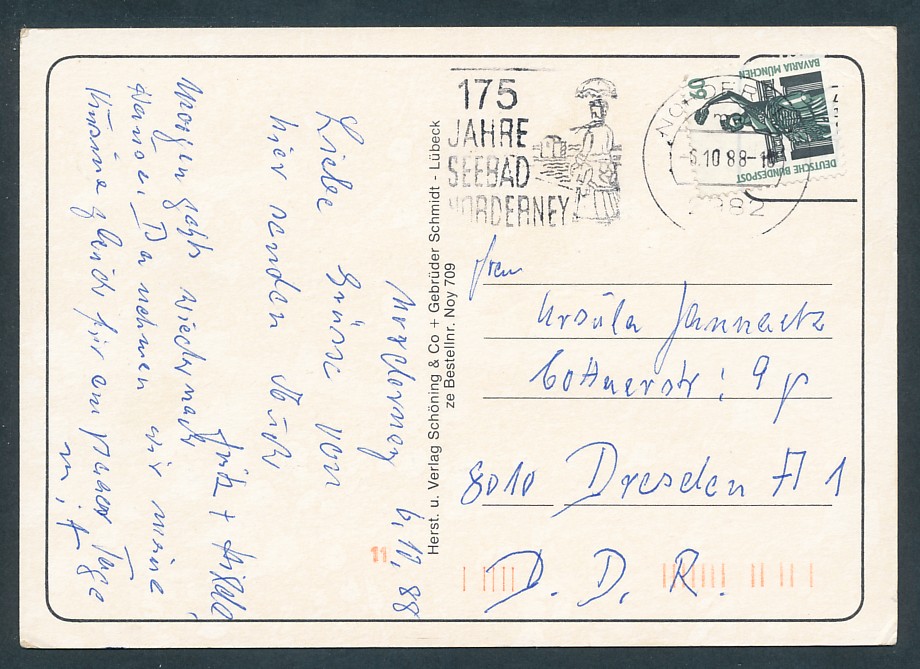 175
JAHRE
SEEBAD
NORDERNEY
-6.10.88-1
2982
60
DEUTSCHE BUNDESPOST
BAVARIA MÜNCHEN
Herst. u. Verlag Schöning & Co + Gebrüder Schmidt - Lübeck
ze Bestellnr. Noy 709
Norderney 6.10.88
Liebe Grüsse von
hier senden Euch
Fritz + Hilde
Morgen geht wieder nach
Hause. Da nehmen wir meine
Kusine gleich für ein paar Tage
mit
Frau
Ursula Jannartz
8010 Dresden A 1
D. D. R.
11